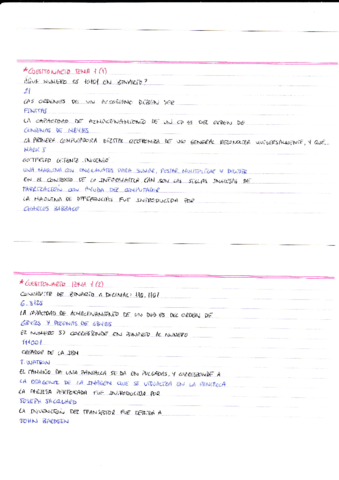 *CUESTIONARIO TEMA 1 (1)
¿QUÉ NÚMERO ES 10101 EN BINARIO?
21
LAS ÓRDENES DE UN ALGORITMO DEBEN SER
FINITAS
LA CAPACIDAD DE ALMACENAMIENTO DE UN CD ES DEL ORDEN DE
CENTENAS DE MBYTES
LA PRIMERA COMPUTADORA DIGITAL ELECTRÓNICA DE USO GENERAL RECONOCIDA UNIVERSALMENTE, Y QUE...
MARK I
GOTTFRIED LEIBNIZ INVENTÓ
UNA MÁQUINA CON ENGRANAJES PARA SUMAR, RESTAR, MULTIPLICAR Y DIVIDIR
EN EL CONTEXTO DE LA INFORMÁTICA CAO SON LAS SIGLAS INGLESAS DE
FABRICACIÓN CON AYUDA DEL ORDENADOR
LA MÁQUINA DE DIFERENCIAS FUE INTRODUCIDA POR
CHARLES BABBAGE
*CUESTIONARIO TEMA 1 (2)
CONVIERTE DE BINARIO A DECIMAL: 110,1101
6,8125
LA CAPACIDAD DE ALMACENAMIENTO DE UN DVD ES DEL ORDEN DE
GBYTES Y DECENAS DE GBYTES
EL NÚMERO 57 CORRESPONDE EN BINARIO AL NÚMERO
111001
CREADOR DE LA IBM
T. WATSON
EL TAMAÑO DE UNA PANTALLA SE DA EN PULGADAS, Y CORRESPONDE A
LA DIAGONAL DE LA IMAGEN QUE SE VISUALIZA EN LA PANTALLA
LA TARJETA PERFORADA FUE INTRODUCIDA POR
JOSEPH JACQUARD
LA INVENCIÓN DEL TRANSISTOR FUE DEBIDA A
JOHN BARDEEN